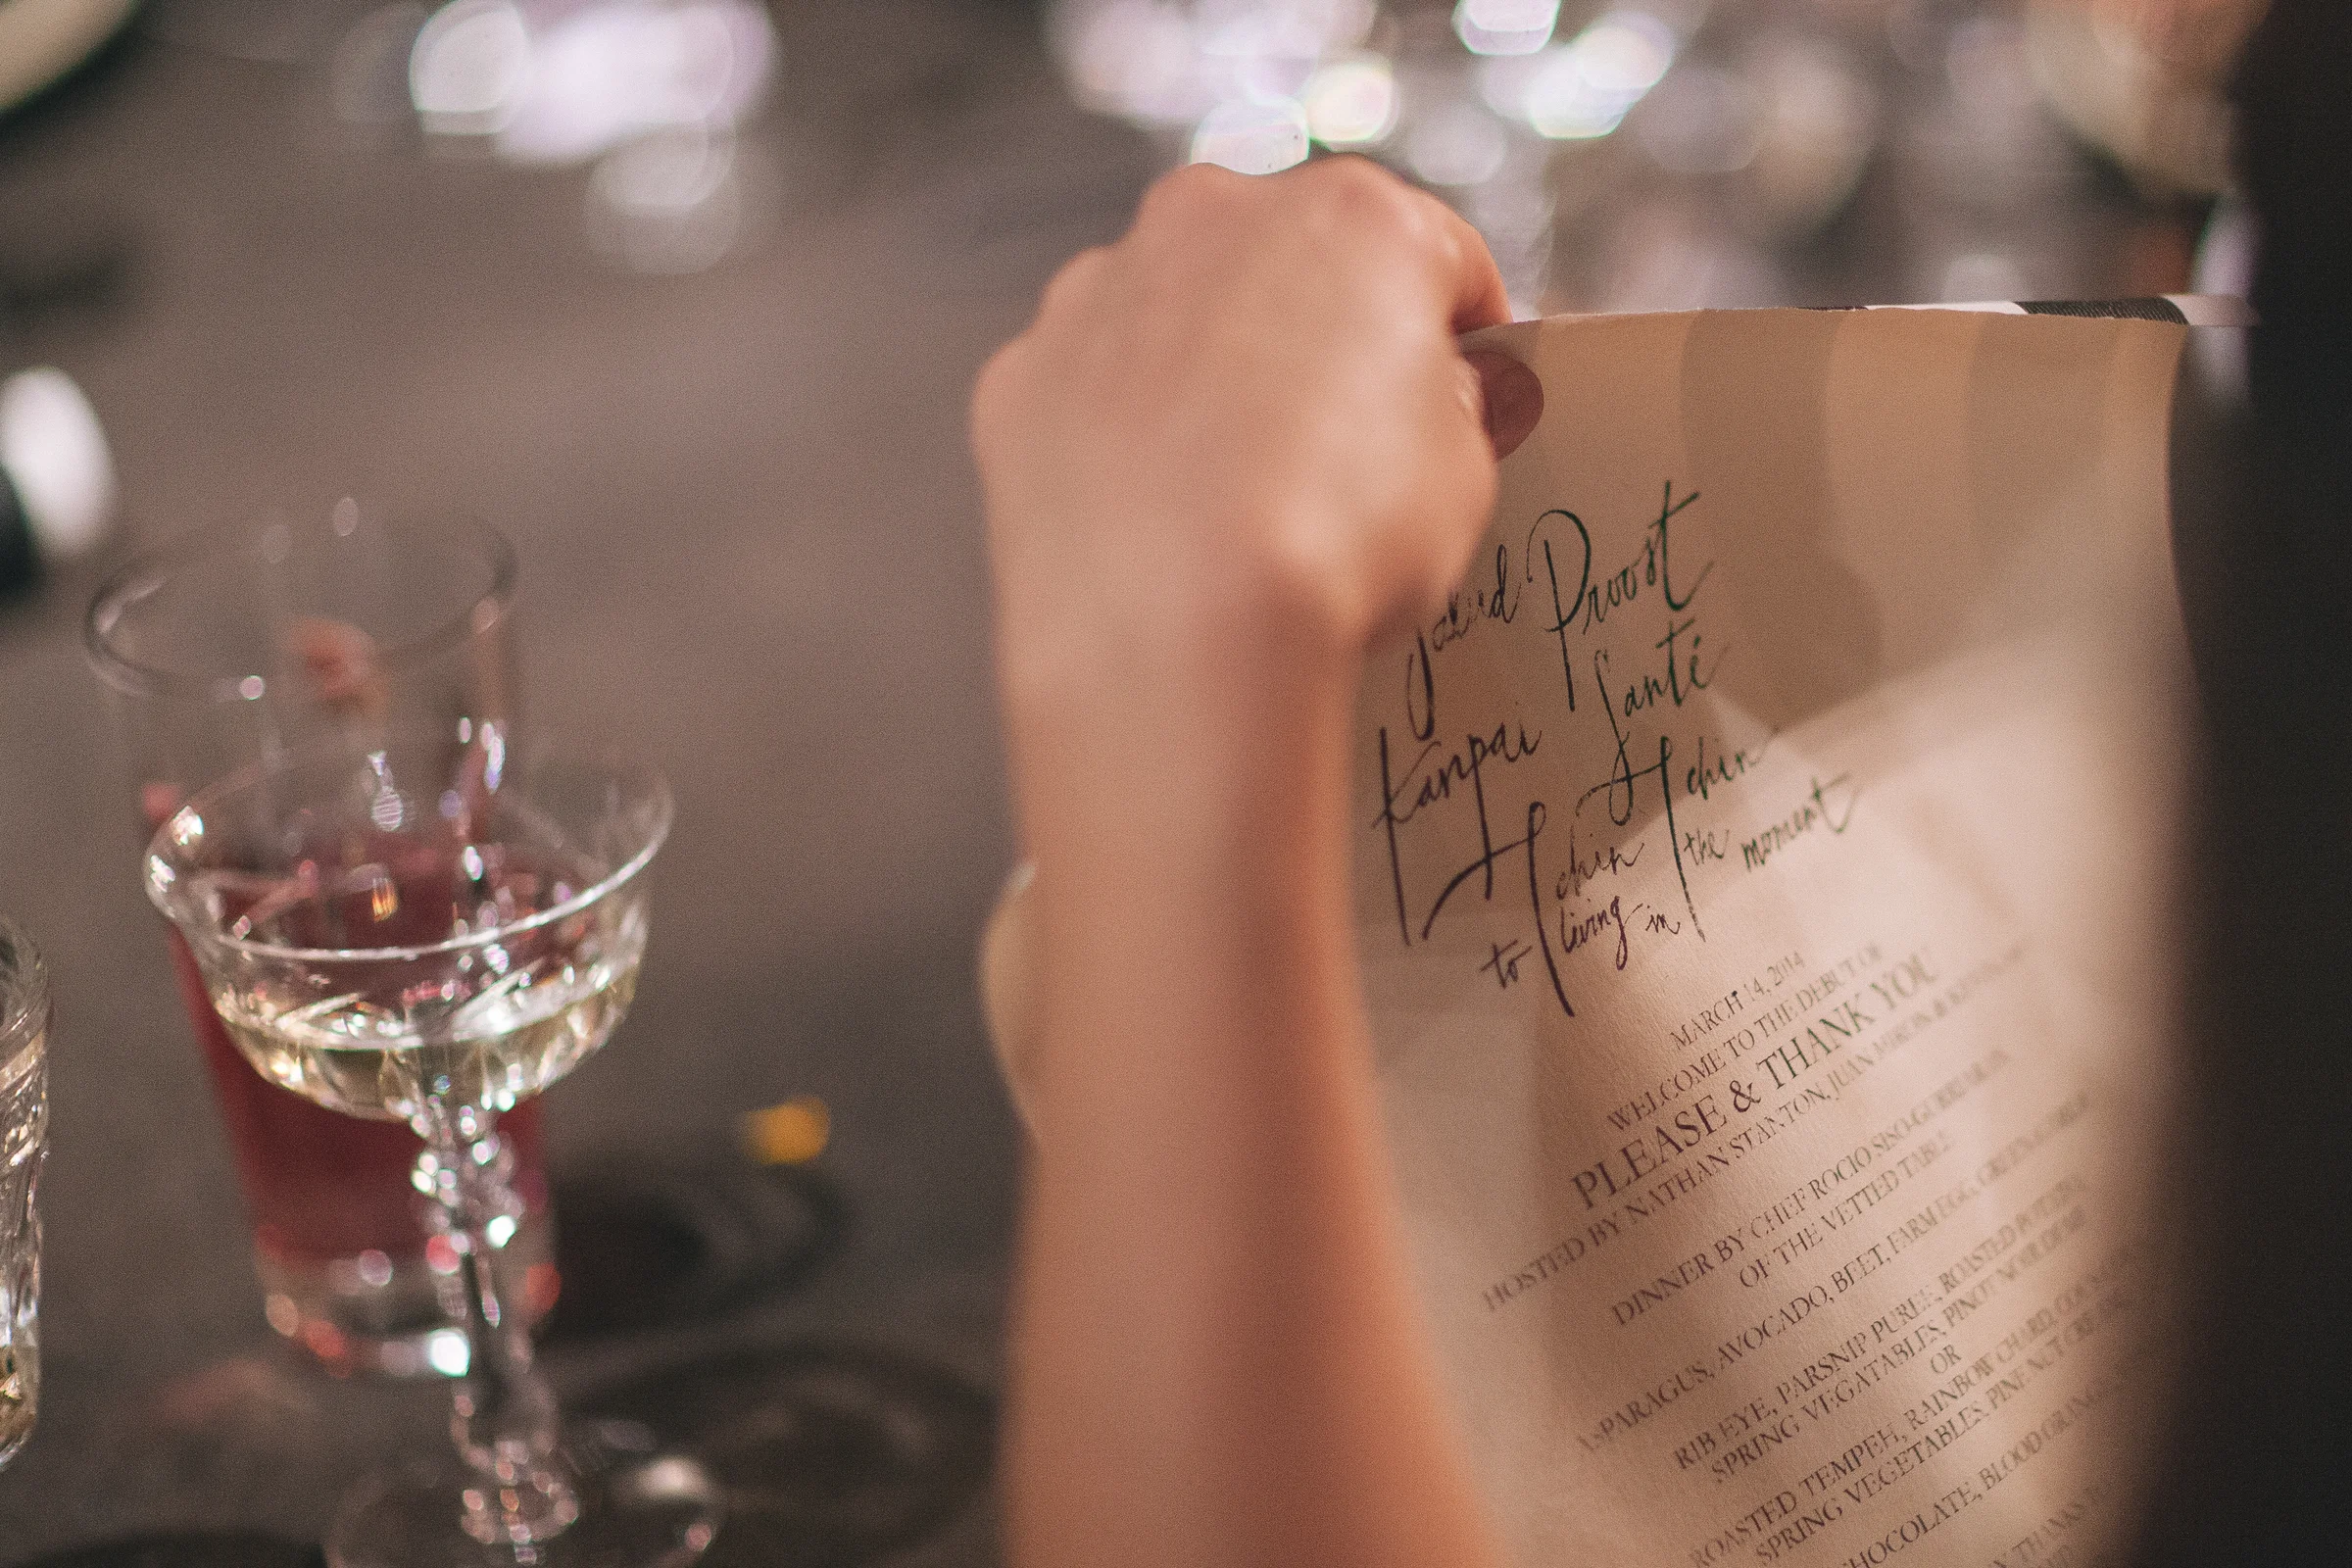 Proost
Kanpai Santé
Tchin Tchin
to living in the moment
MARCH 14, 2014
WELCOME TO THE DEBUT OF
PLEASE & THANK YOU
HOSTED BY NATHAN STANTON, JUAN
DINNER BY CHEF ROCIO
OF THE VETTED TABLE
ASPARAGUS, AVOCADO, BEET, FARM EGG, GREEN
RIB EYE, PARSNIP PUREE, ROASTED
SPRING VEGATABLES, PINOT NOIR
OR
ROASTED TEMPEH, RAINBOW CHARD,
SPRING VEGETABLES, PINE NUT
CHOCOLATE, BLOOD
THANKS